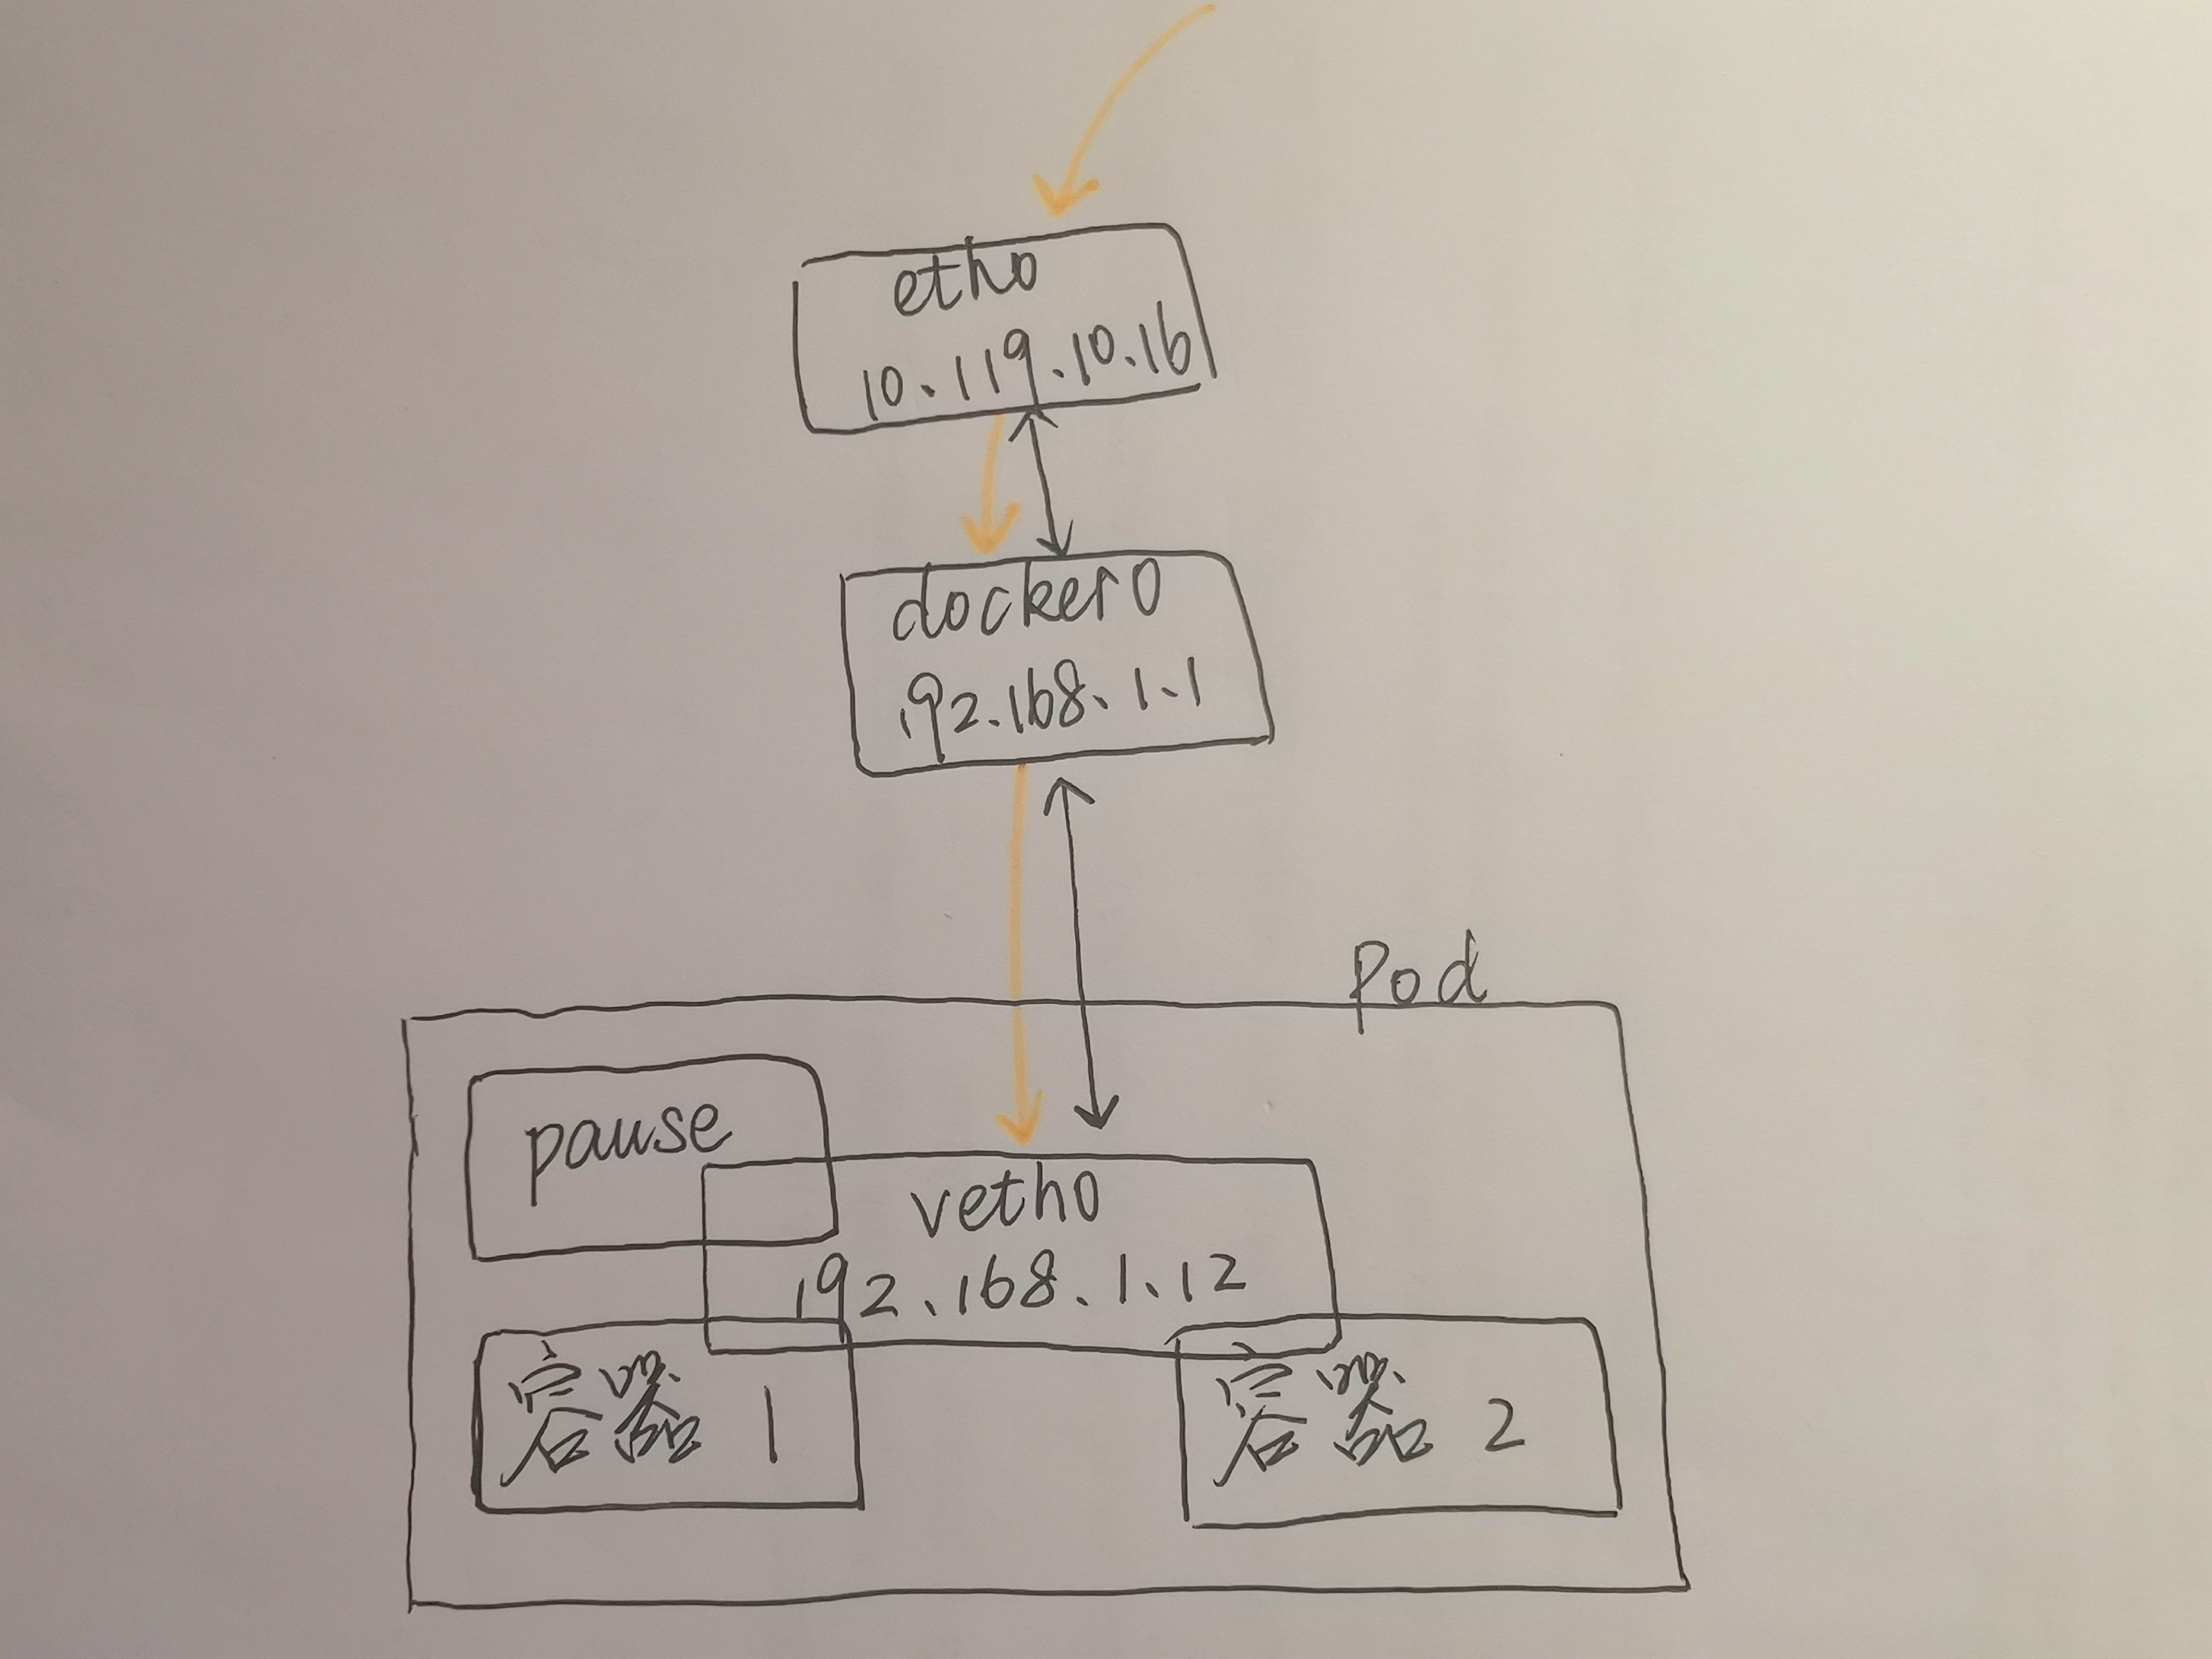 eth0
10.119.10.16
docker0
192.168.1.1
Pod
pause
veth0
192.168.1.12
容器 1
容器 2